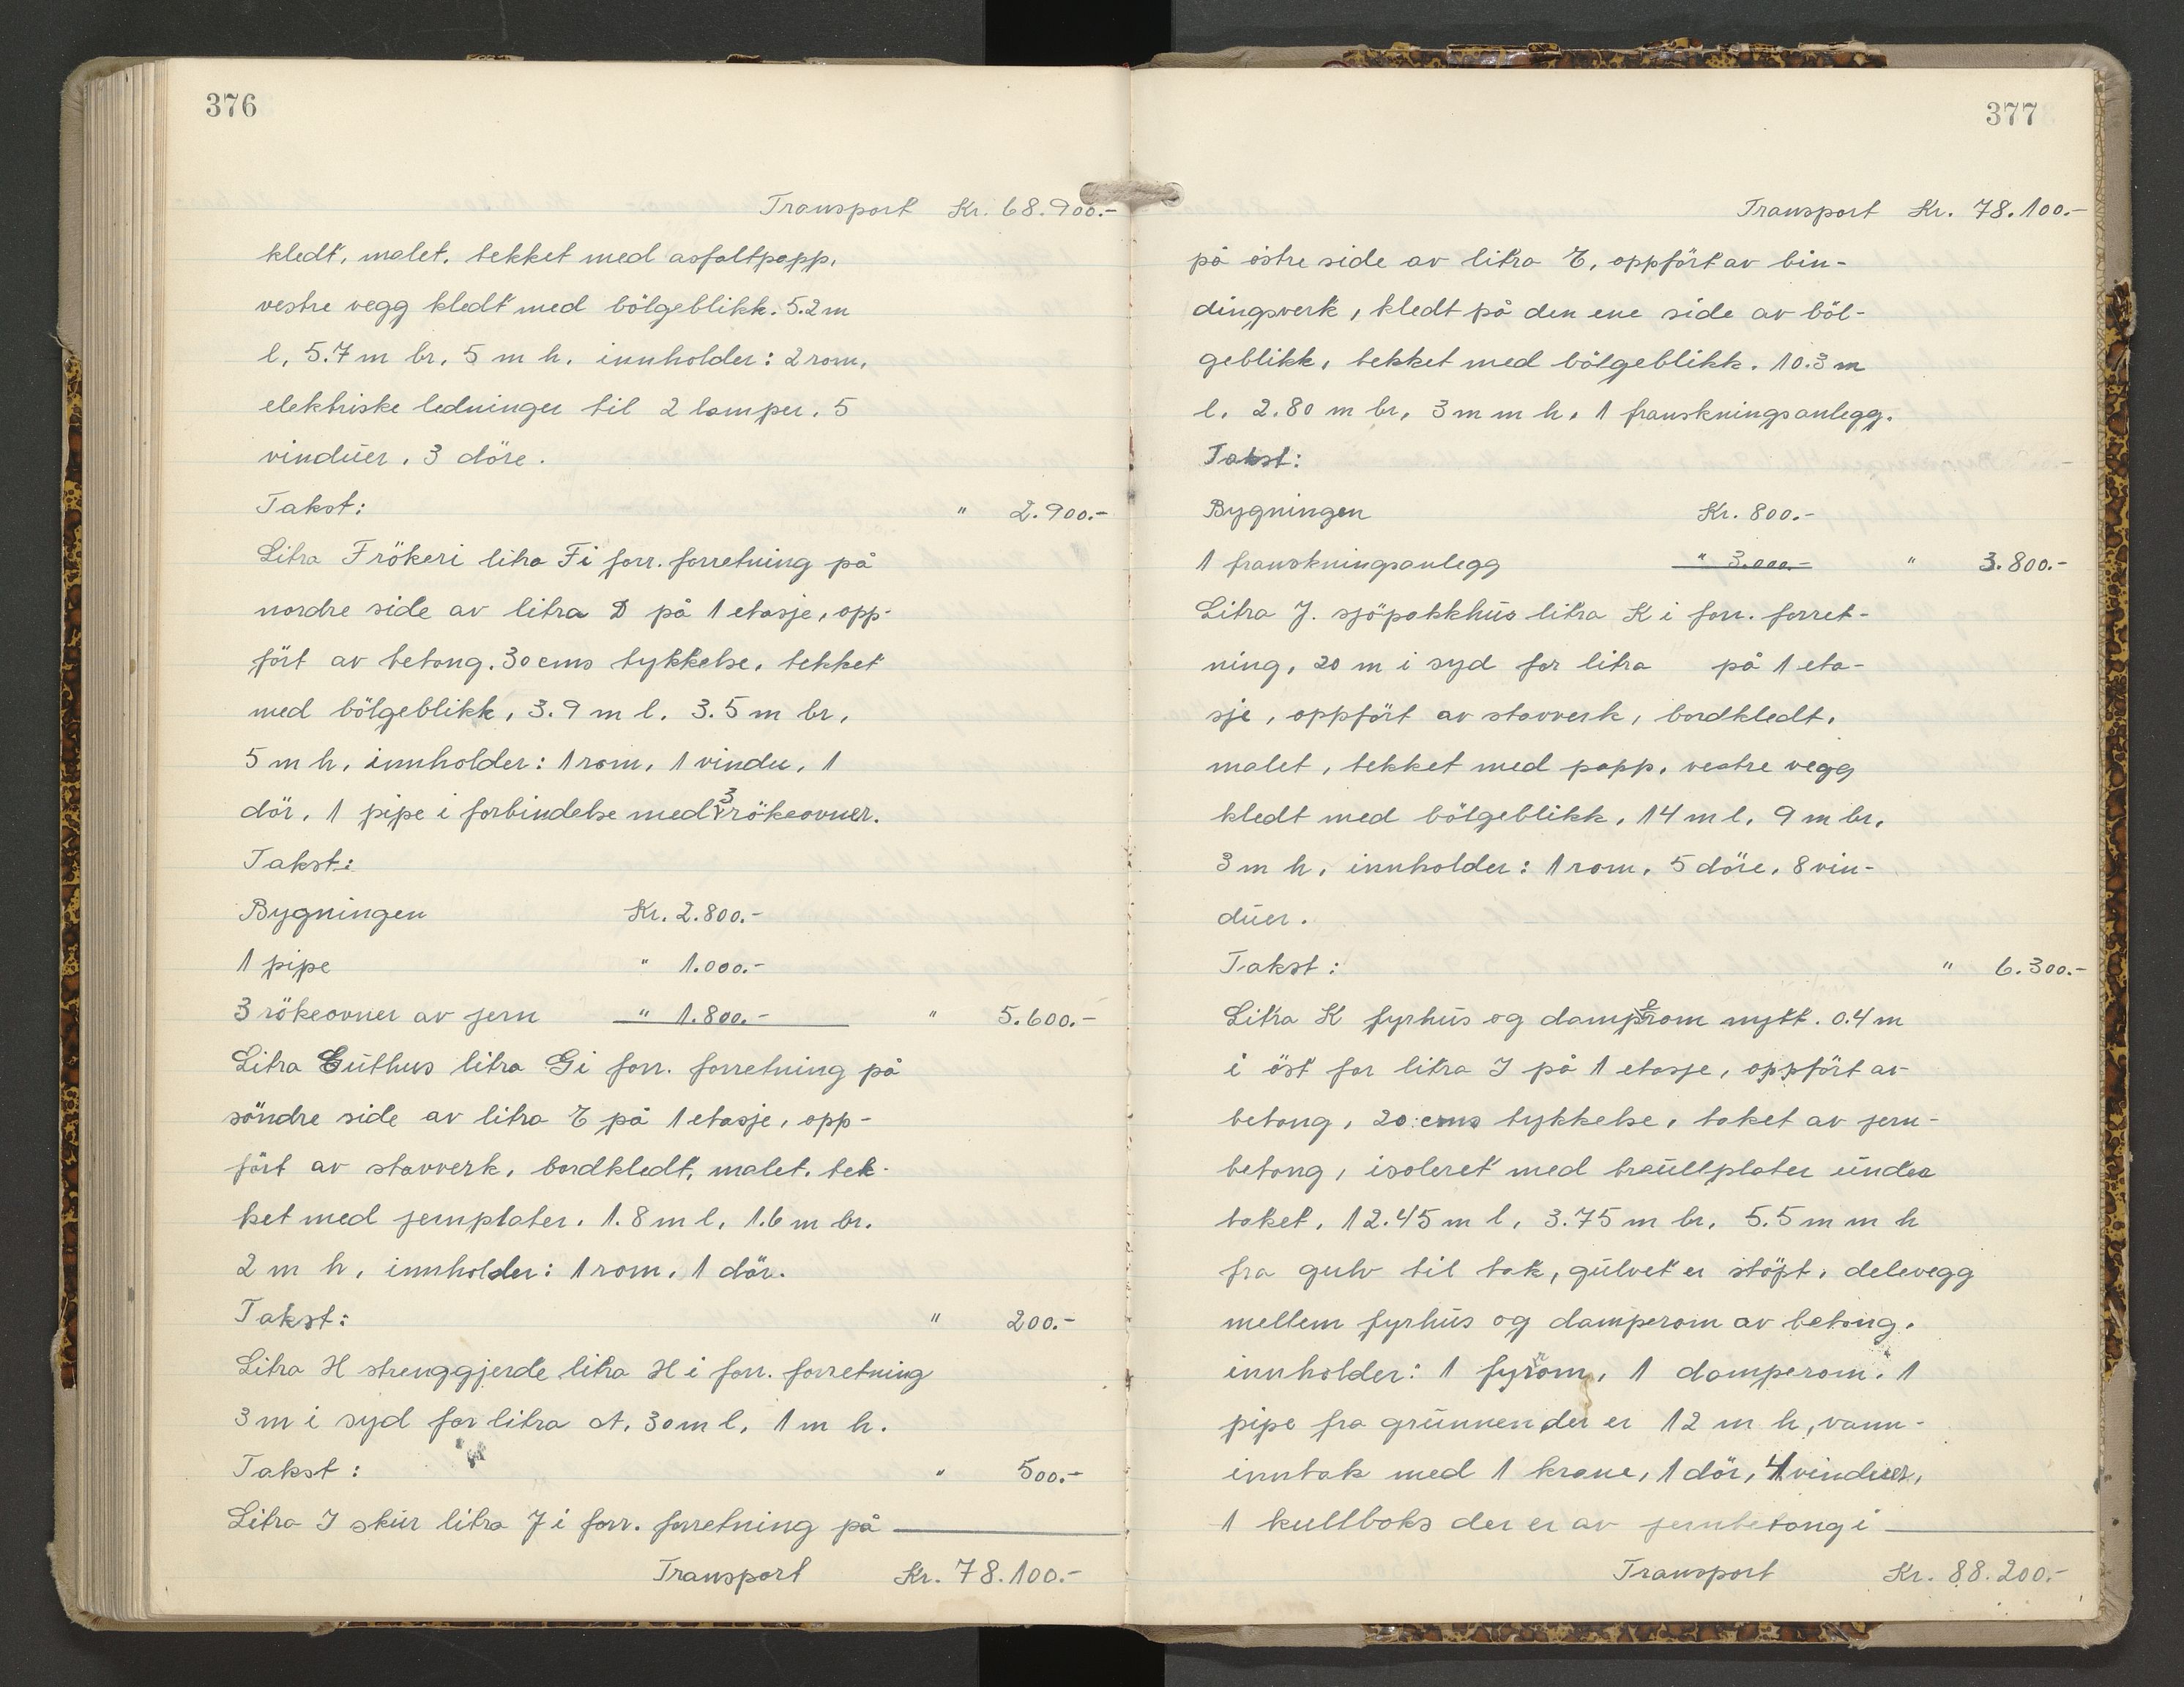 376
Transport Kr. 68.900.-
kledt, malet, tekket med asfaltpapp,
vestre vegg kledt med bölgeblikk. 5.2 m
l, 5.7 m br, 5 m h, innholder: 2 rom,
elektriske ledninger til 2 lamper, 5
vinduer, 3 döre.
Takst: " 2.900.-
Litra F rökeri litra F i forr. forretning på
nordre side av litra D på 1 etasje, opp-
fört av betong. 30 cms tykkelse, tekket
med bölgeblikk, 3.9 m l, 3.5 m br,
5 m h, innholder: 1 rom, 1 vindu, 1
dör, 1 pipe i forbindelse med 3 rökeovner.
Takst:
Bygningen Kr. 2.800.-
1 pipe " 1.000.-
3 rökeovner av jern " 1.800.- " 5.600.-
Litra G uthus litra G i forr. forretning på
söndre side av litra E på 1 etasje, opp-
fört av stavverk, bordkledt, malet, tek-
ket med jernplater. 1.8 m l, 1.6 m br.
2 m h, innholder: 1 rom, 1 dör.
Takst: " 200.-
Litra H strenggjerde litra H i forr. forretning
3 m i syd for litra A, 30 m l, 1 m h.
Takst: " 500.-
Litra I skur litra J i forr. forretning på
Transport Kr. 78.100.-
377
Transport Kr. 78.100.-
på östre side av litra E, oppfört av bin-
dingsverk, kledt på den ene side av böl-
geblikk, tekket med bölgeblikk. 10.3 m
l, 2.80 m br, 3 m m h, 1 franskningsanlegg.
Takst:
Bygningen Kr. 800.-
1 franskningsanlegg " 3.000.- " 3.800.-
Litra J. sjöpakkhus litra K i forr. forret-
ning, 20 m i syd for litra på 1 eta-
sje, oppfört av stavverk, bordkledt,
malet, tekket med papp, vestre vegg
kledt med bölgeblikk, 14 m l, 9 m br,
3 m h, innholder: 1 rom, 5 döre, 8 vin-
duer.
Takst: " 6.300.-
Litra K fyrhus og damperom nytt. 0.4 m
i öst for litra I på 1 etasje, oppfört av
betong, 20 cms tykkelse, taket av jern-
betong, isoleret med treullplater under
taket, 12.45 m l, 3.75 m br, 5.5 m m h
fra gulv til tak, gulvet er stöpt, delevegg
mellem fyrhus og damperom av betong.
innholder: 1 fyrrom, 1 damperom, 1
pipe fra grunnen der er 12 m h, vann-
inntak med 1 krane, 1 dör, 4 vinduer,
1 kullboks der er av jernbetong i
Transport Kr. 88.200.-